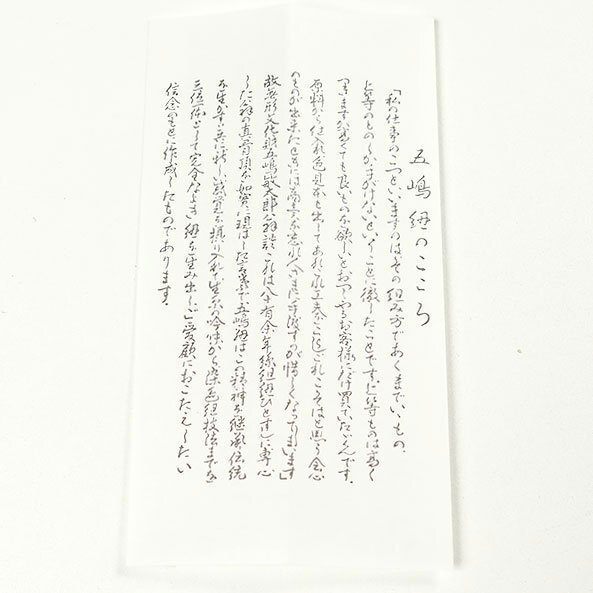 五嶋紐のこころ
「私の仕事のこつといいますのは、その組み方であくまでいいもの、
上等のものしかまがけないということに徹したことです。上等ものは高く
つきますが高くても良いものを欲しいとおっしゃるお客様にだけ買っていただくんです。
原料から仕入れ色見本も出してあれこれ工夫をこらしこれこそはと思う会心
のものが出来たときには商売を忘れ人さまに手渡すのが惜しくなってしまいます」
故無形文化財五嶋敏太郎翁談 これは八十有余年絲組紐ひとすじに専心
した翁の真骨頂を如実に現はした言葉で五嶋紐はこの精神を継承し伝統
を生かす共に新しい感覚を摂り入れ、生糸の吟味から染色組技法までを
三位一体として完全なよき紐を生み出しご愛顧におこたえしたい
信念のもとに作成したものであります。